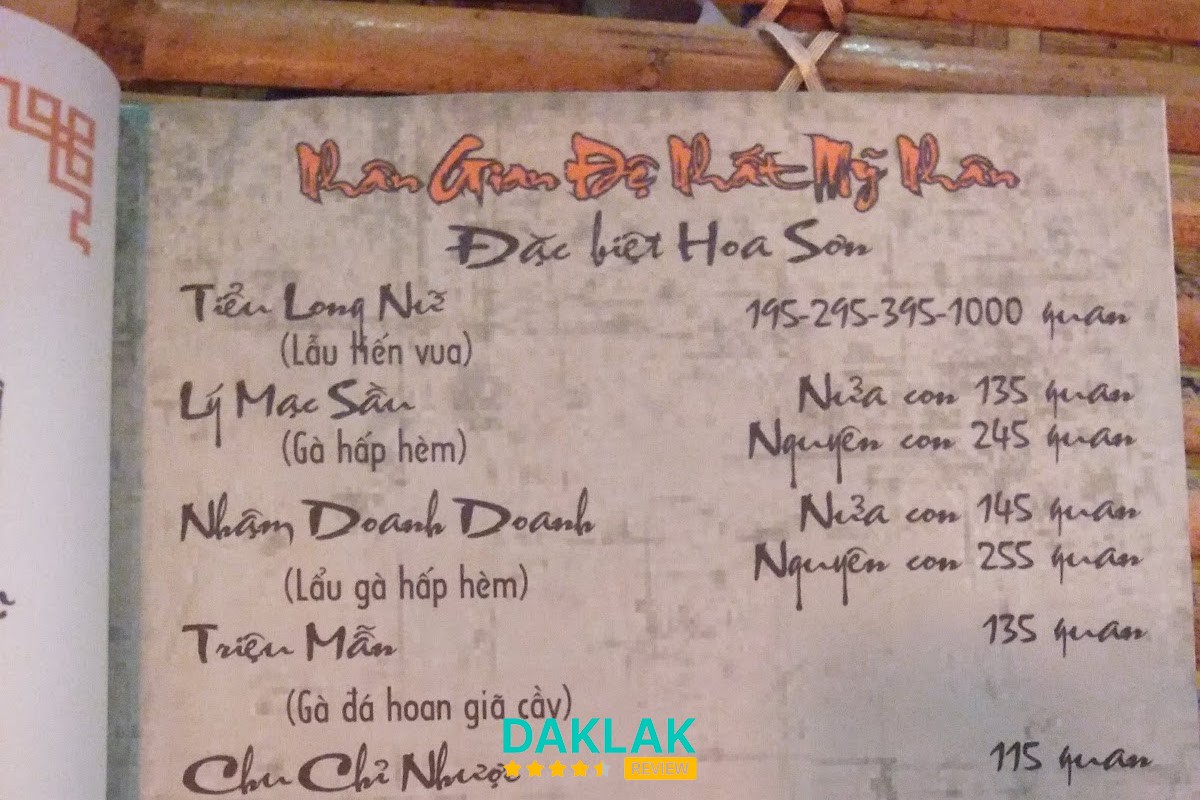 Nhân Gian Đệ Nhất Mỹ Nhân
Đặc biệt Hoa Sơn
Tiểu Long Nữ 195-295-395-1000 quan
(Lẩu tiến vua)
Lý Mạc Sầu Nửa con 135 quan
(Gà hấp hèm) Nguyên con 245 quan
Nhậm Doanh Doanh Nửa con 145 quan
Nguyên con 255 quan
(Lẩu gà hấp hèm)
Triệu Mẫn 135 quan
(Gà đá hoan giã cầy)
DAKLAK
REVIEW
Chu Chỉ Nhược 115 quan